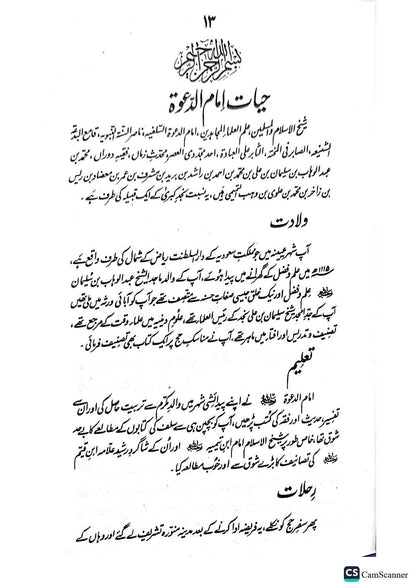 ۱۳
بسم اللہ الرحمن الرحیم
حیات امام الدعوۃ
شیخ الاسلام والمسلمین، علم العلماء المجاہدین، امام الدعوۃ السلفیہ، ناصر السنۃ النبویہ، قامع البدعۃ
الشنیعہ، الصابر فی المحنۃ، المثابر علی العبادۃ، احد مجددی العصر، محدث زماں، فقیہہ دوراں، محمد بن
عبد الوہاب بن سلیمان بن علی بن محمد بن احمد بن راشد بن برید بن مشرف بن عمر بن معضاد بن ریس
بن زاخر بن محمد بن علوی بن وہیب التمیمی ہیں، یہ نسبت نجد کبریٰ کے ایک قبیلہ کی طرف ہے۔
ولادت
آپ شہر عیینہ میں جو مملکت سعودیہ کے دار السلطنت ریاض کے شمال کی طرف واقع ہے،
۱۱۱۵ھ میں علم و فضل کے گھرانے میں پیدا ہوئے، آپ کے والد ماجد الشیخ عبد الوہاب بن سلیمان
علم و فضل اور نیک خلق جیسی صفات حسنہ سے متصف تھے جو آپ کو آبائی ورثہ میں ملی تھیں
آپ کے جد امجد شیخ سلیمان بن علی نجد کے رئیس العلماء تھے، علوم دینیہ میں علماء وقت کے مرجع تھے،
تصنیف و تدریس اور افتاء میں ماہر تھے، آپ نے مناسک حج پر ایک کتاب بھی تصنیف فرمائی۔
تعلیم
امام الدعوۃ نے اپنے پیدائشی شہر میں والد مکرم سے تربیت حاصل کی اور ان سے
تفسیر، حدیث اور فقہ کی کتب پڑھیں، آپ کو بچپن ہی سے سلف کی کتابوں کے مطالعے کا بے حد
شوق تھا، خاص طور پر شیخ الاسلام امام ابن تیمیہ اور ان کے شاگرد رشید علامہ ابن قیم
کی تصانیف کا بڑے شوق سے اور خوب مطالعہ کیا۔
رحلات
پھر سفر حج کو نکلے، یہ فریضہ ادا کرنے کے بعد مدینہ منورہ تشریف لے گئے اور وہاں کے
CS CamScanner